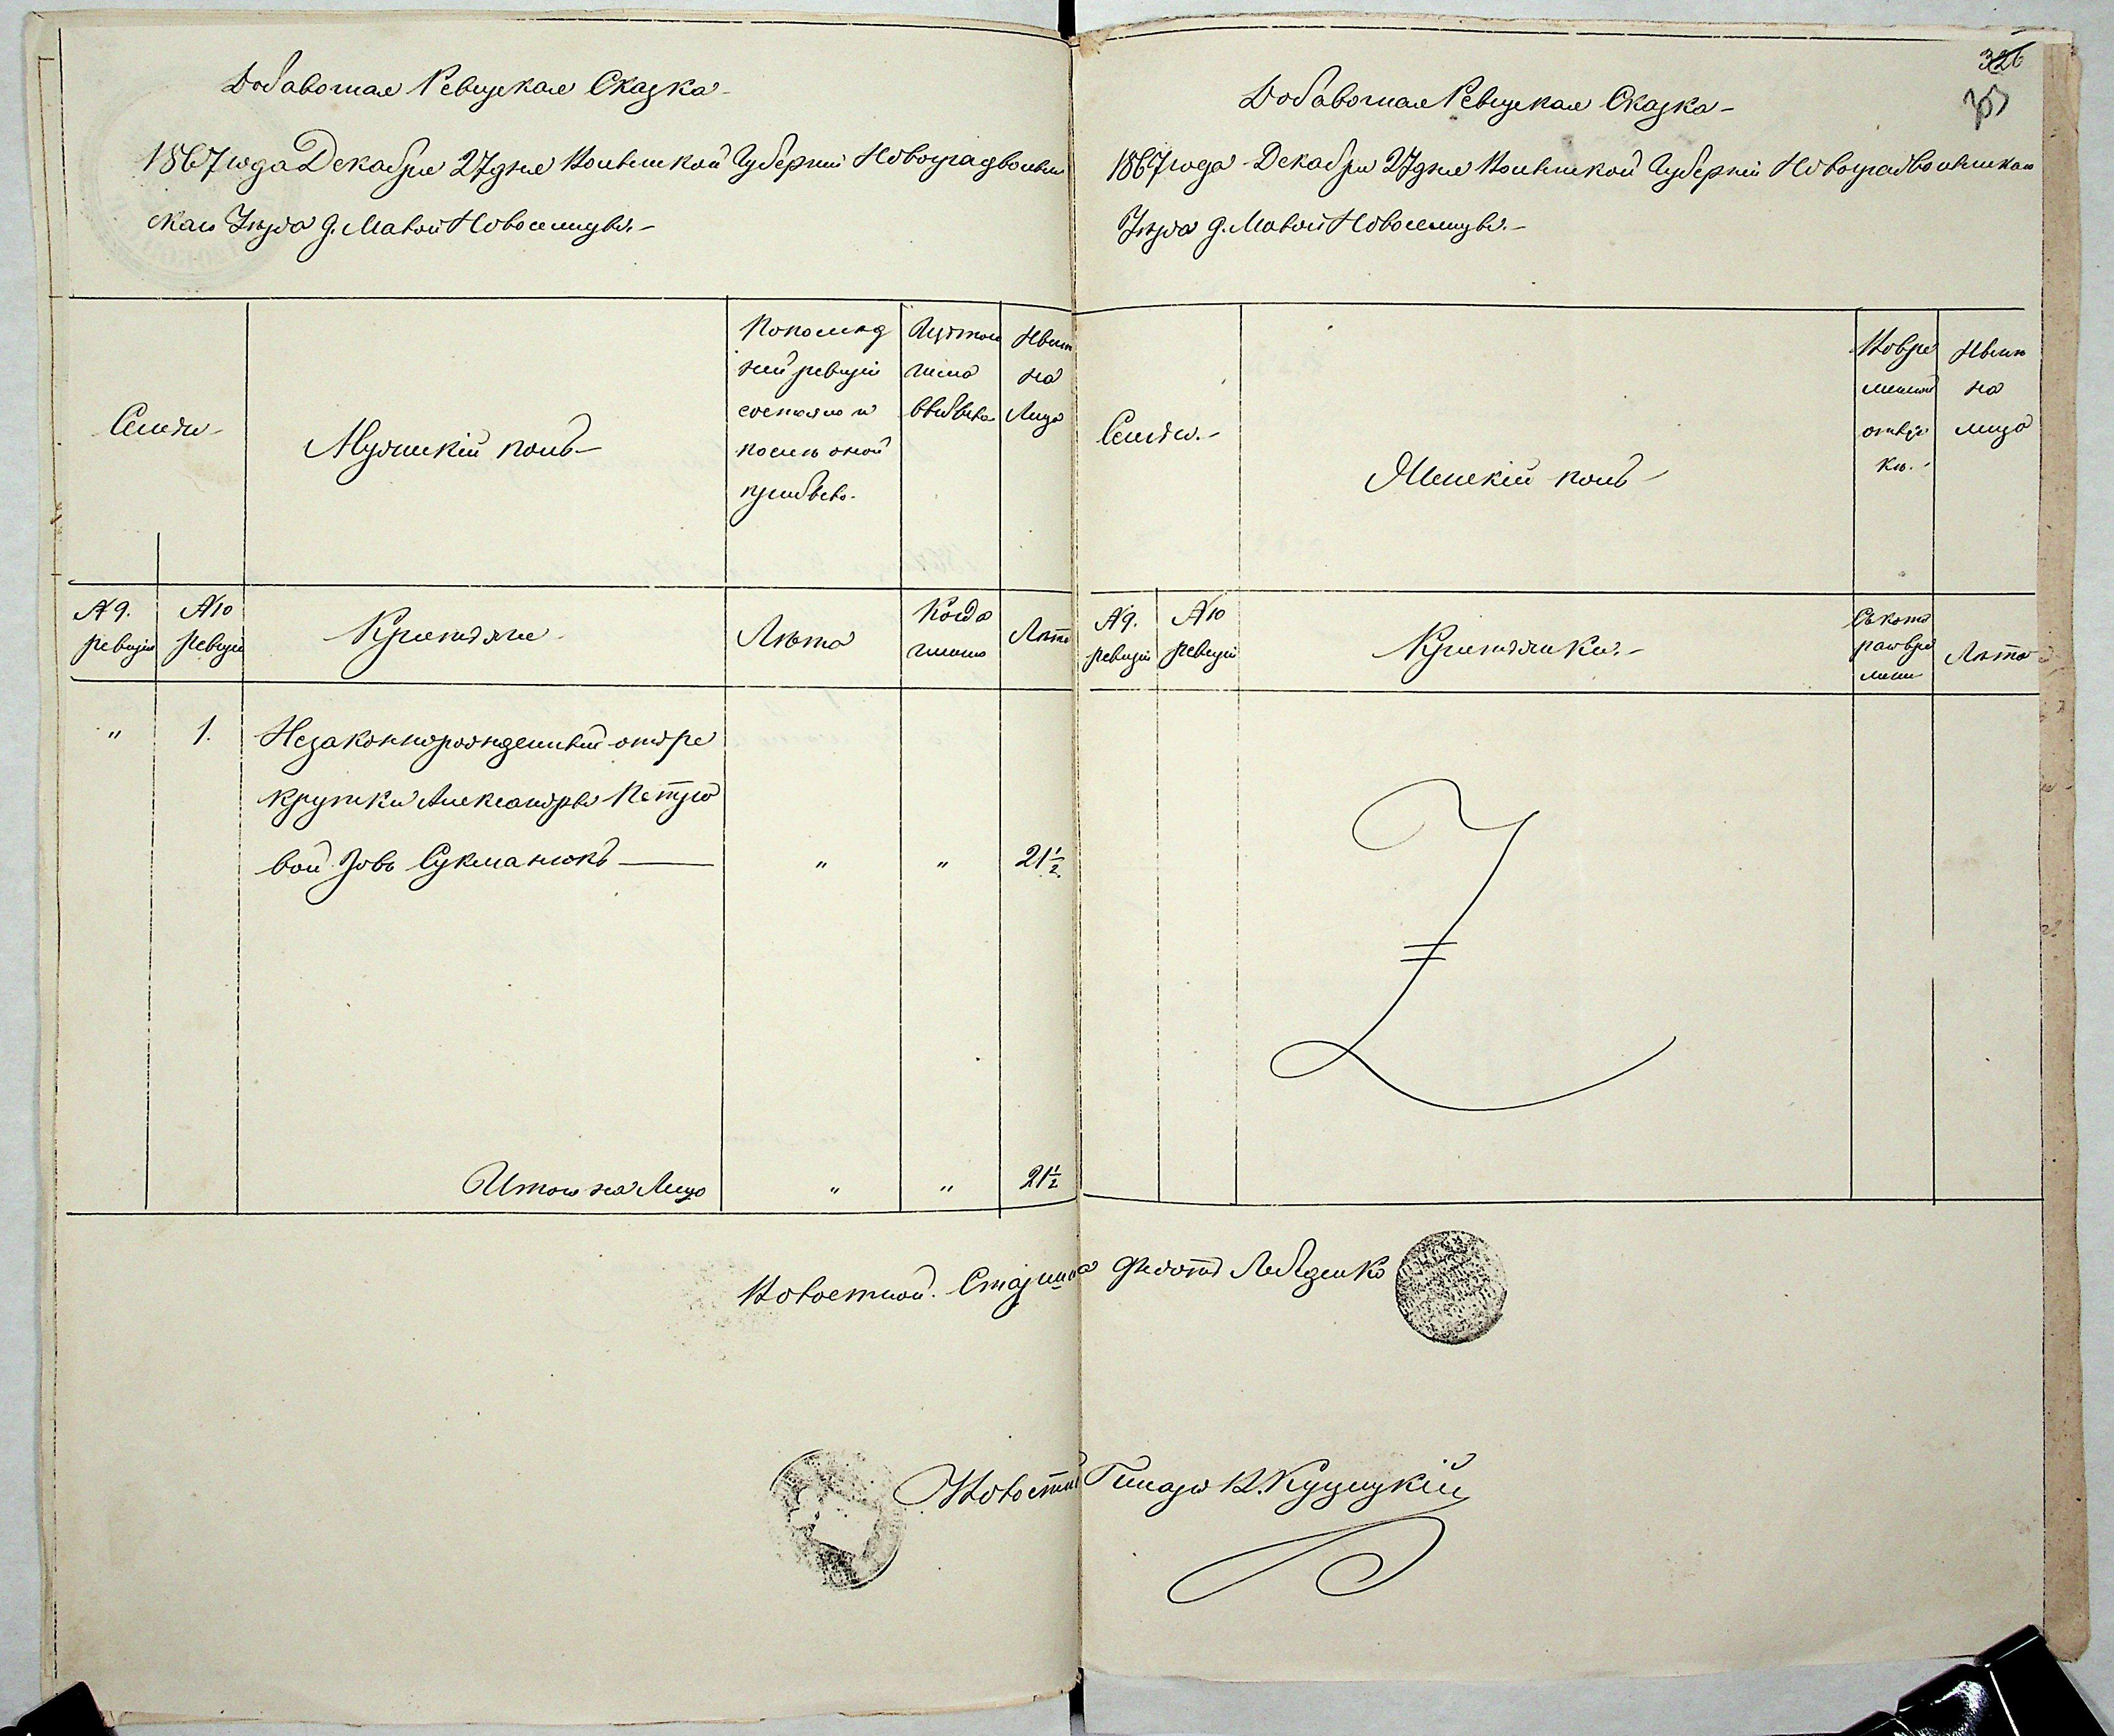 Добавочная Ревизская Сказка
1867 года Декабря 27 дня Волынской Губерніи Новоградволын
скаго Уѣзда д. Малой Новоселицы.
Семьи
Мужскій полъ
По послѣд
ней ревизіи
состояло и
послѣ оной
прибыло.
Изъ того
числа
выбыло
Нынѣ
на
Лицо
№ 9.
ревизіи
№ 10
ревизіи
Крестьяне
Лѣта
Когда
именно
Лѣта
" 1. Незаконнорожденный отъ ре
крутки Александры Петро
вой Іовъ Сукманюкъ " " 21½
Итого на Лицо " " 21½
326
Добавочная Ревизская Сказка
1867 года Декабря 27 дня Волынской Губерніи Новоградволынскаго
Уѣзда д. Малой Новоселицы.
Семьи.
Женскій полъ
Во вре
менной
отлуч
кѣ.
Нынѣ
на
лицо
№ 9.
ревизіи
№ 10
ревизіи
Крестьянки.
Съ кото
раго вре
мени
Лѣта
Волостной Старшина Федотъ Лебеденко
Волостный Писарь К. Куцицкій